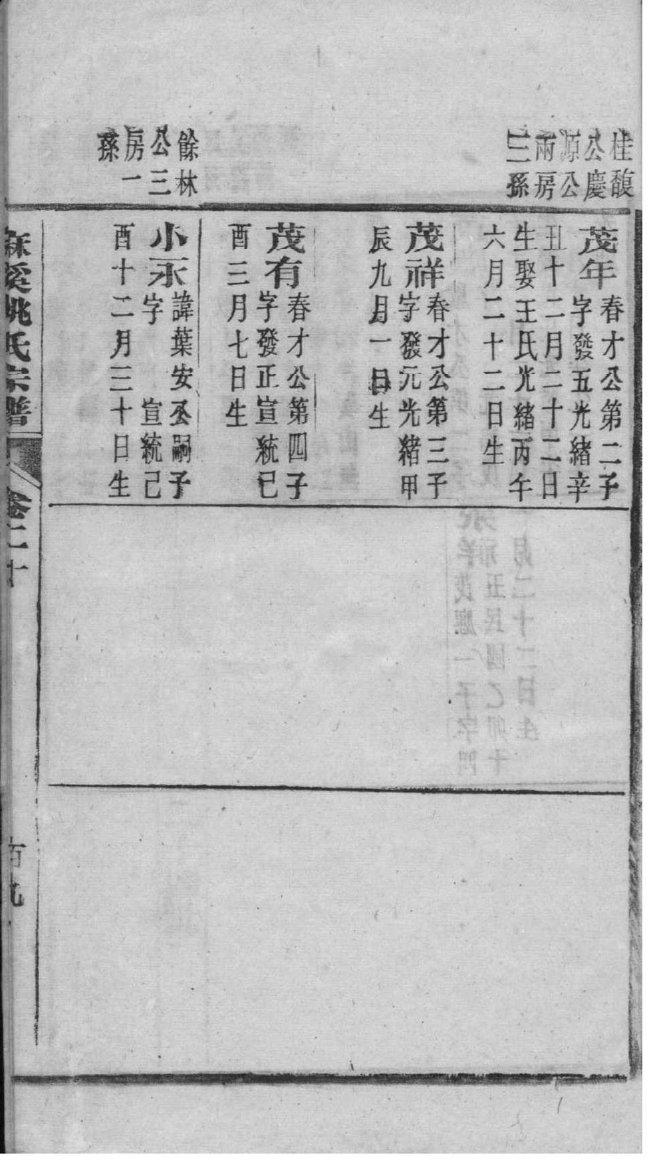 桂馥
公慶
源公
兩房
三孫
茂年
春才公第二子
字發五光緒辛
丑十二月二十二日
生娶王氏光緒丙午
六月二十二日生
茂祥
春才公第三子
字發元光緒甲
辰九月一日生
茂有
春才公第四子
字發正宣統己
酉三月七日生
餘林
公三
房一
孫
小禾
諱葉安公嗣子
字 宣統己
酉十二月三十日生
姚氏宗譜
卷二十